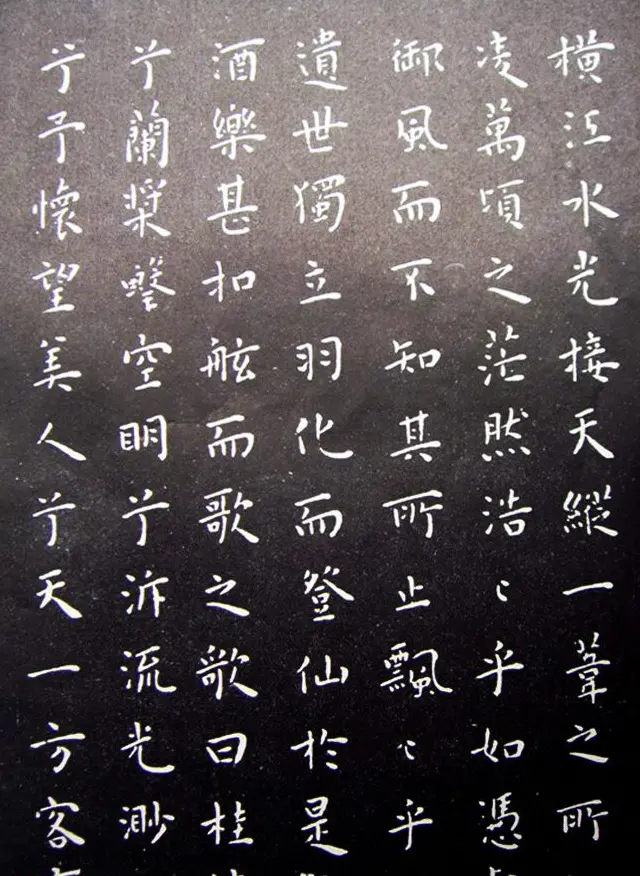 橫江水光接天縱一葦之所
凌萬頃之茫然浩〻乎如憑
御風而不知其所止飄〻乎
遺世獨立羽化而登仙於是
酒樂甚扣舷而歌之歌曰桂
兮蘭槳擊空明兮泝流光渺
兮予懷望美人兮天一方客